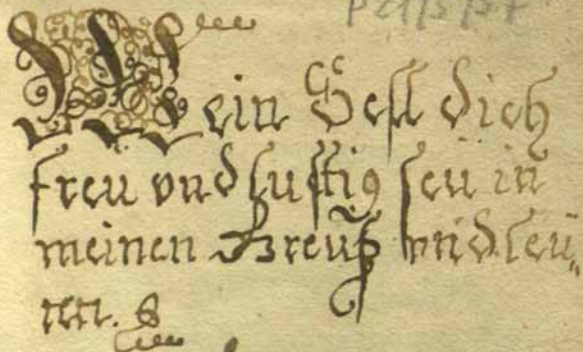 Mein Seel dich
freu vnd lustig seu in
meinen Kreutz vnd leu„
nn.